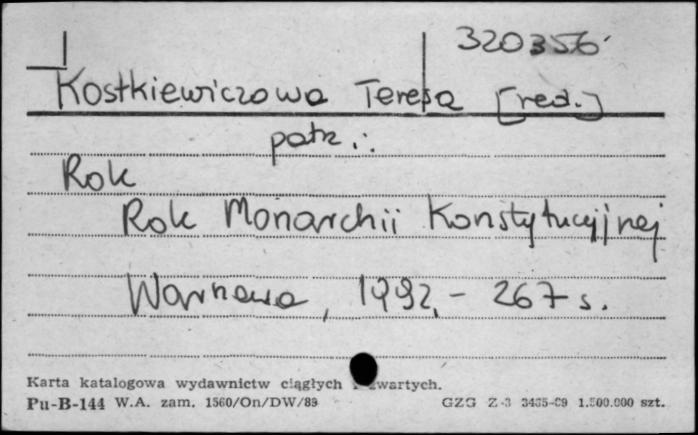 320356
Kostkiewiczowa Teresa [red.]
patrz.:
Rok
Rok Monarchii Konstytucyjnej
Warszawa, 1992. - 267 s.
Karta katalogowa wydawnictw ciągłych zwartych.
Pu-B-144 W.A. zam. 1560/On/DW/89 GZG Z-3 3435-89 1.500.000 szt.